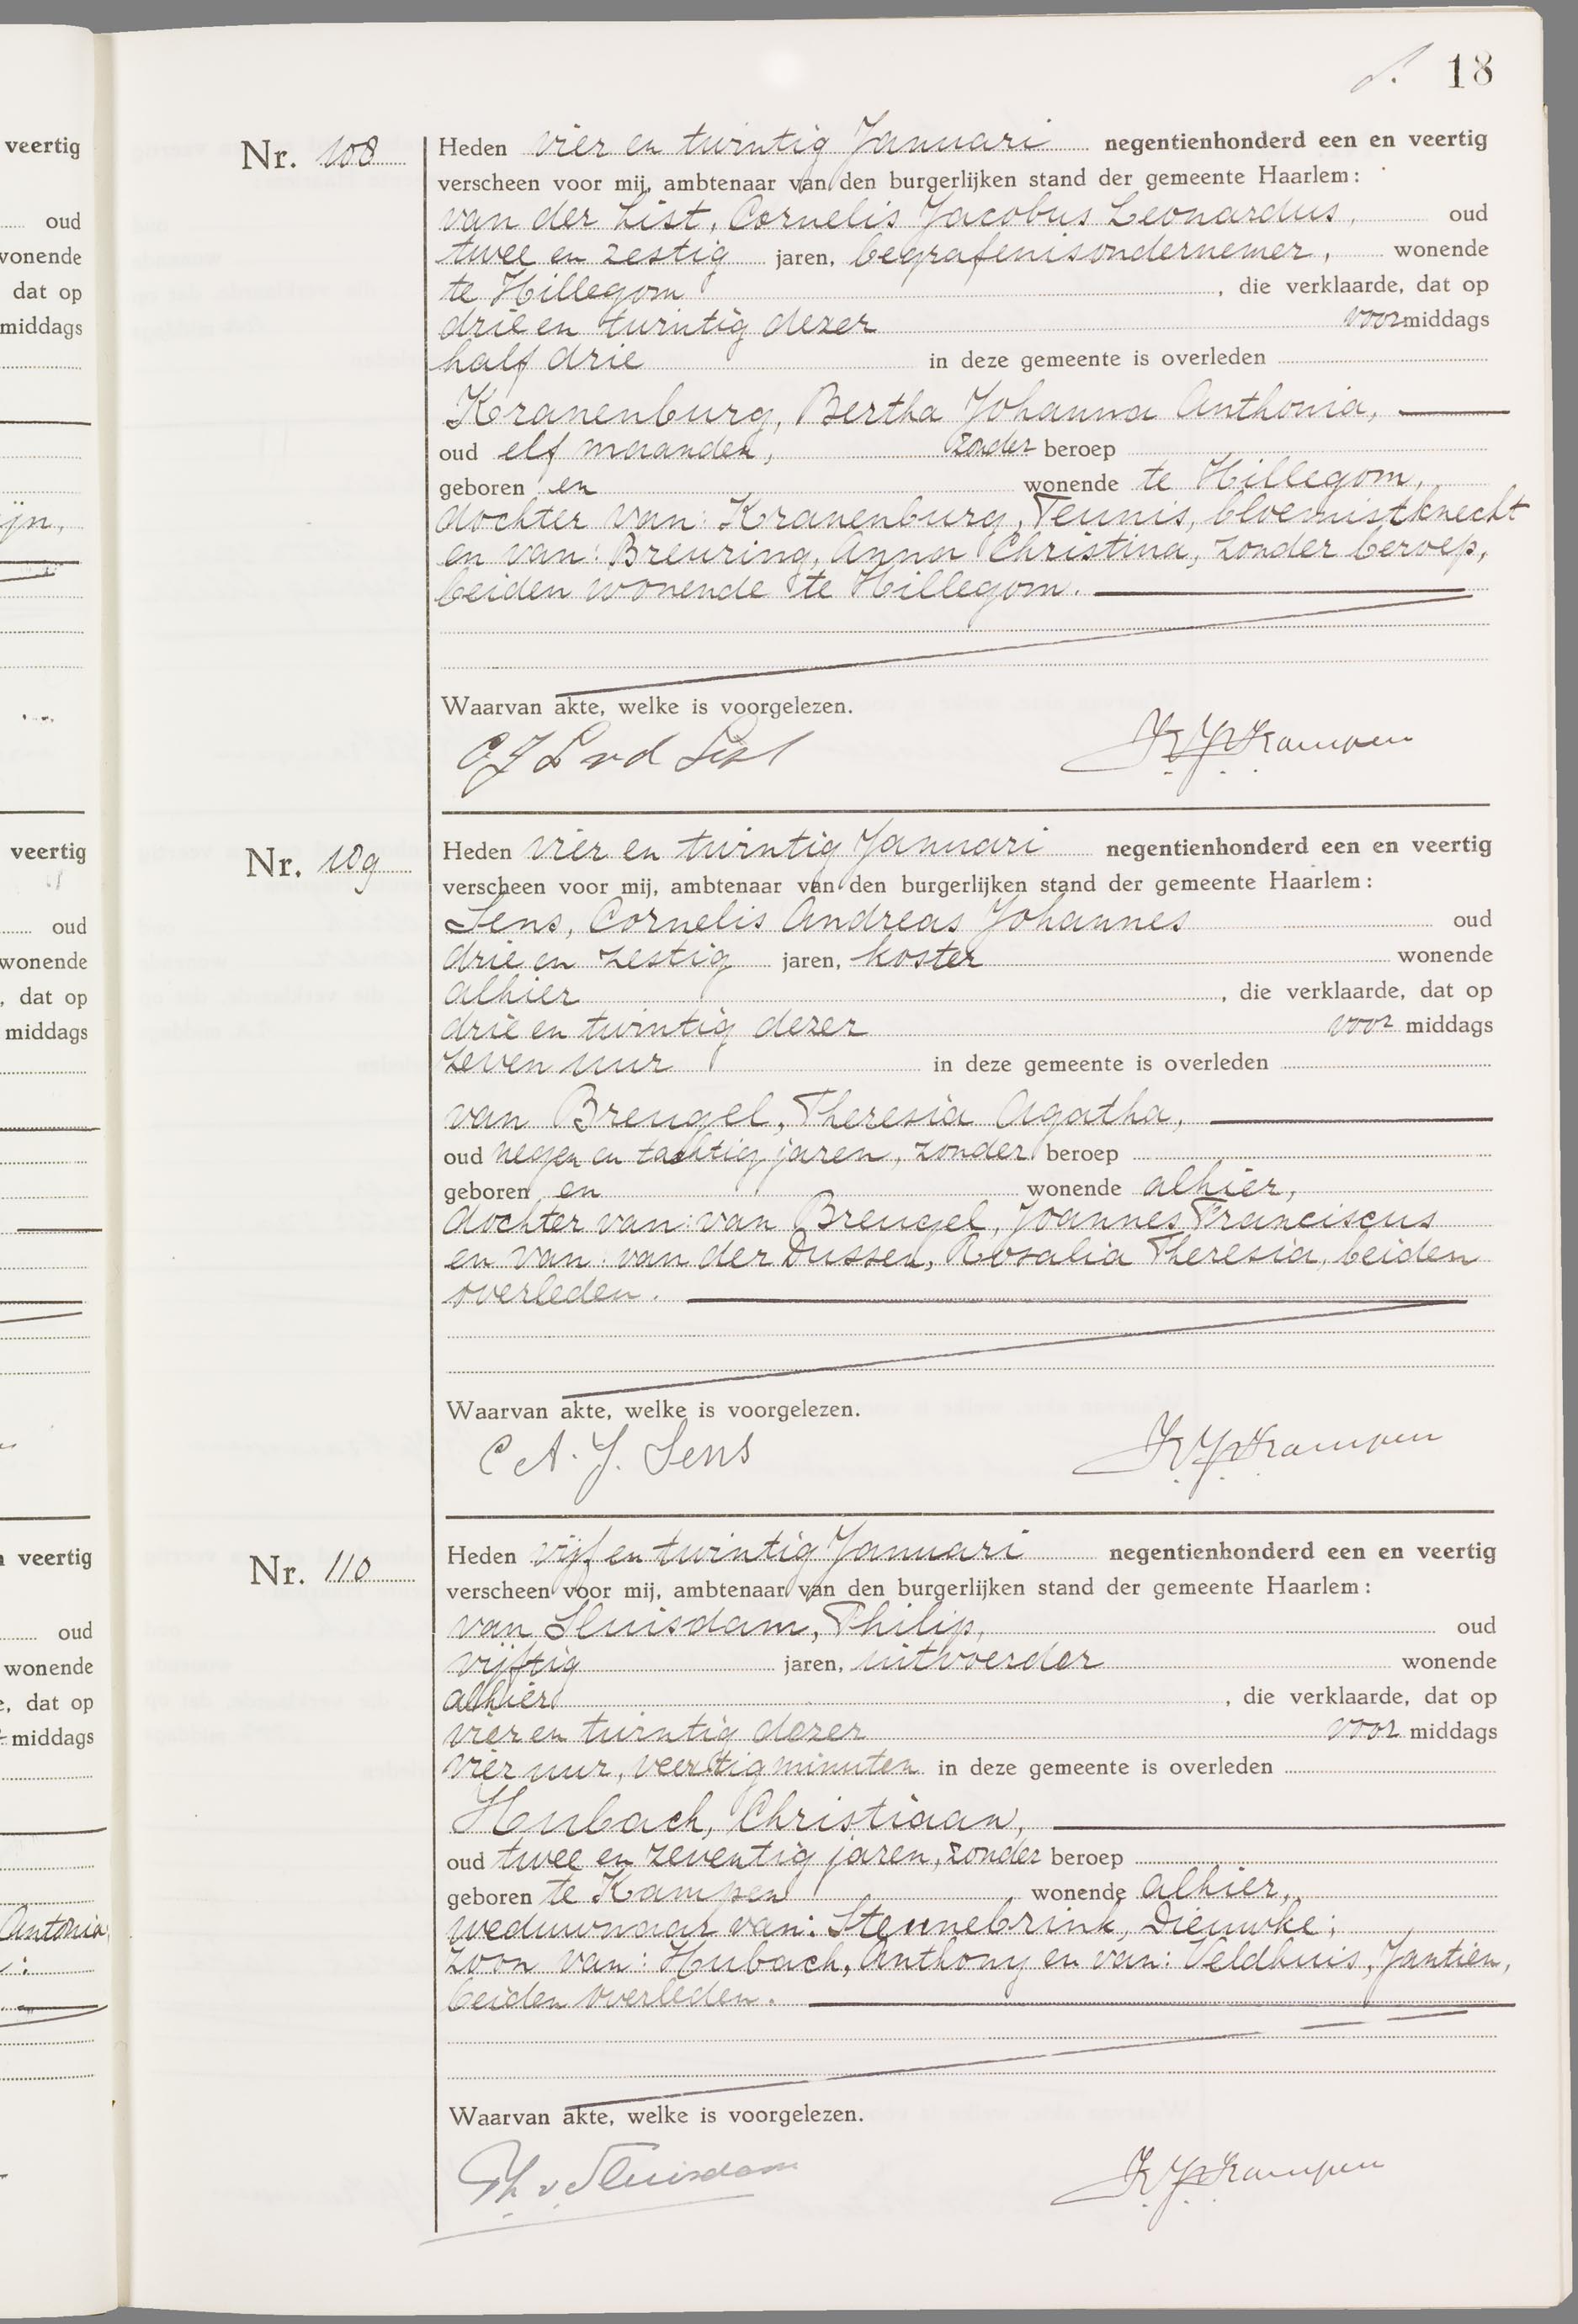 18
veertig
oud
wonende
dat op
middags
ijn,
veertig
oud
wonende
, dat op
middags
veertig
oud
wonende
, dat op
middags
Antonia
Nr. 108
Heden vier en twintig Januari negentienhonderd een en veertig
verscheen voor mij, ambtenaar van den burgerlijken stand der gemeente Haarlem:
van der List, Cornelis Jacobus Leonardus, oud
twee en zestig jaren, begrafenisondernemer, wonende
te Hillegom, die verklaarde, dat op
drie en twintig dezer voormiddags
half drie in deze gemeente is overleden
Kranenburg, Bertha Johanna Anthonia,
oud elf maanden, zonder beroep
geboren en wonende te Hillegom,
dochter van: Kranenburg, Teunis, bloemistknecht
en van: Breuring, Anna Christina, zonder beroep,
beiden wonende te Hillegom.
Waarvan akte, welke is voorgelezen.
C J L vd List
Nr. 109
Heden vier en twintig Januari negentienhonderd een en veertig
verscheen voor mij, ambtenaar van den burgerlijken stand der gemeente Haarlem:
Sens, Cornelis Andreas Johannes oud
drie en zestig jaren, koster wonende
alhier, die verklaarde, dat op
drie en twintig dezer voor middags
zeven uur in deze gemeente is overleden
van Breugel, Theresia Agatha,
oud negen en tachtig jaren, zonder beroep
geboren en wonende alhier,
dochter van: van Breugel, Joannes Franciscus
en van: van der Dussen, Rosalia Theresia, beiden
overleden.
Waarvan akte, welke is voorgelezen.
C A. J. Sens
Nr. 110
Heden vijf en twintig Januari negentienhonderd een en veertig
verscheen voor mij, ambtenaar van den burgerlijken stand der gemeente Haarlem:
van Sluisdam, Philip, oud
vijftig jaren, uitvoerder wonende
alhier, die verklaarde, dat op
vier en twintig dezer voor middags
vier uur, veertig minuten in deze gemeente is overleden
Hubach, Christiaan,
oud twee en zeventig jaren, zonder beroep
geboren te Kampen wonende alhier,
weduwnaar van: Stennebrink, Dieuwke;
zoon van: Hubach, Anthony en van: Veldhuis, Jantien,
beiden overleden.
Waarvan akte, welke is voorgelezen.
Ph v Sluisdam